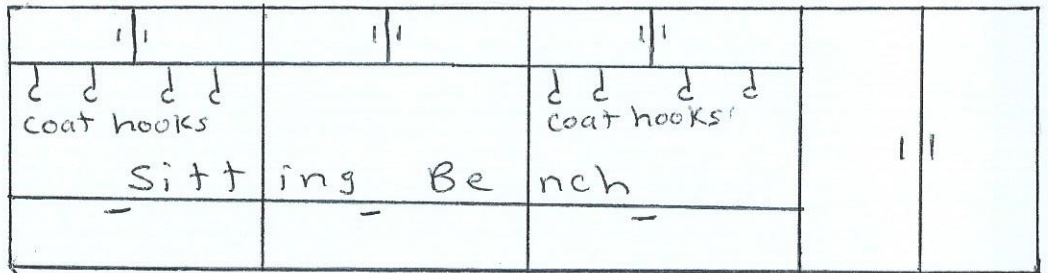 coat hooks
coat hooks
Sitting Bench